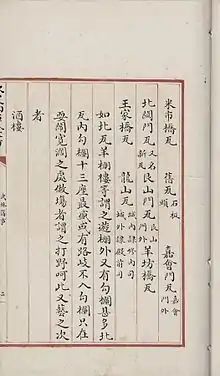 米市橋瓦 舊瓦石板頭 嘉會門瓦嘉會門外
北關門瓦又名新瓦 艮山門瓦艮山門外 羊坊橋瓦
王家橋瓦 龍山瓦城內隸修內司城外隸殿前司
如北瓦羊棚樓等謂之遊棚外又有勾欄甚多北
瓦內勾欄十三座最盛或有路岐不入勾欄只在
耍鬧寬闊之處做場者謂之打野呵此又藝之次
者
酒樓
武林舊事